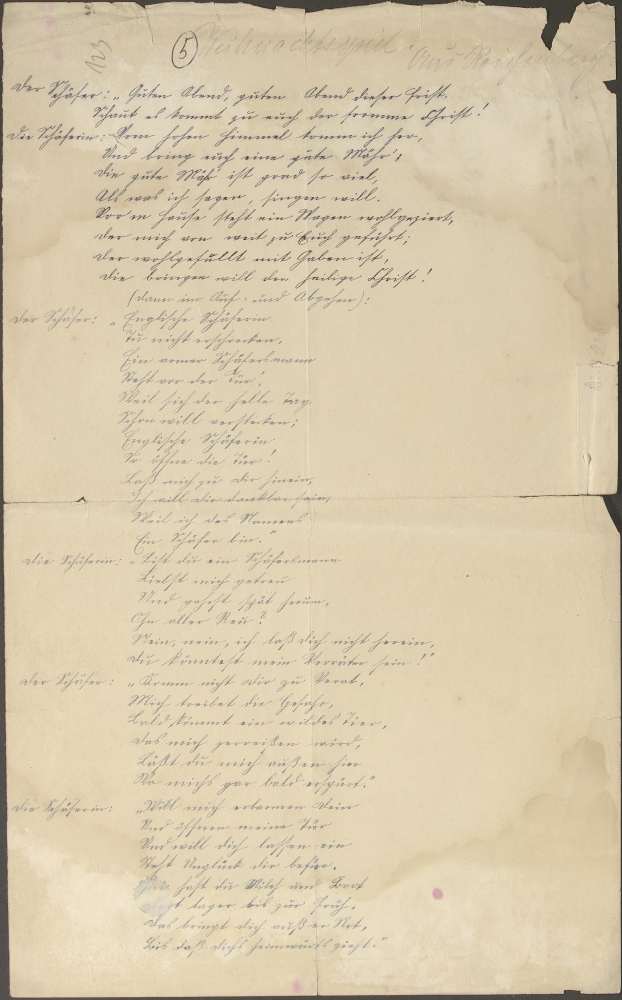 123
5 Weihnachtsspiel. Aus Reichenberg
Der Schäfer: „Guten Abend, guten Abend dieser Frist,
Schaut es kommt zu euch der fromme Christ!
Die Schäferin: Vom hohen Himmel komm ich her,
Und bring euch eine gute Mähr',
Die gute Mähr ist grad so viel,
Als was ich sagen, singen will.
Vor'm Hause steht ein Wagen wohlgeziert,
Der mich von weit zu Euch geführt;
Der wohlgefüllt mit Gaben ist,
Die bringen will der heilige Christ!
(Dann im Auf- und Abgehen):
Der Schäfer: „Englische Schäferin
Tu nicht erschrecken,
Ein armer Schäfersmann
Steht vor der Tür',
Weil sich der helle Tag
Schon will verstecken;
Englische Schäferin
So öffne die Tür!
Laß mich zu dir hinein,
Ich will dir dankbar sein,
Weil ich des Namens
Ein Schäfer bin."
Die Schäferin: „Bist du ein Schäfersmann
Liebst mich getreu
Und gehest spät herum,
Ohn aller Reu?
Nein, nein, ich laß dich nicht herein,
Du könntest mein Verräter sein!"
Der Schäfer: „Komm nicht dir zu Verat,
Mich treibet die Gefahr,
Bald kommt ein wildes Tier,
Das mich zerreißen wird,
Läßt du mich außen hier
Wo michs gar bald erspürt."
Die Schäferin: „Will mich erbarmen dein
Und öffnen meine Tür
Und will dich lassen ein
Steht Unglück dir befür.
hast du Milch und Brot
lager bis zur Früh,
Das bringt dich außer Not,
Bis daß dichs heimwärts zieht."